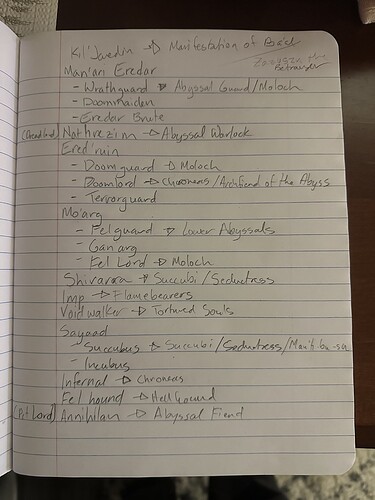 Kil'Jaedin → Manifestation of Ba'el
Betrayer
Man'ari Eredar
- Wrathguard → Abyssal Guard/Moloch
- Doommaiden
- Eredar Brute
(Dreadlord) Nathrezim → Abyssal Warlock
Ered'ruin
- Doomguard → Moloch
- Doomlord → Chroneas/Archfiend of the Abyss
- Terrorguard
Mo'arg
- Felguard → Lower Abyssals
- Gan'arg
- Fel Lord → Moloch
Shivarra → Succubi/Seductress
Imp → Flamebearers
Voidwalker → Tortured Souls
Sayaad
- Succubus → Succubi/Seductress/
- Incubus
Infernal → Chroneas
Felhound → Hell Hound
(Pit Lord) Annihilan → Abyssal Fiend